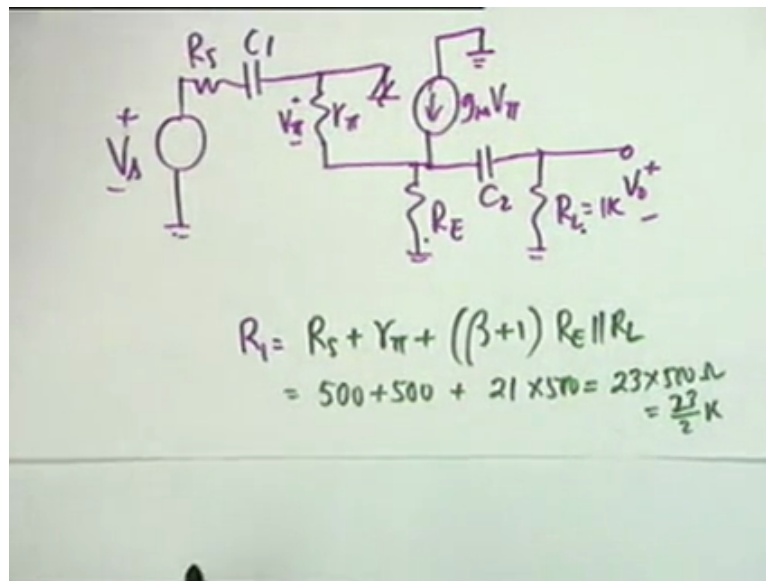 RS C1
+ VS -
+ Vπ - rπ
gmVπ
RE
C2
RL = 1K
V0 + -
R1 = RS + rπ + (β+1) RE || RL
= 500 + 500 + 21 × 500 = 23 × 500 Ω
= 23/2 K